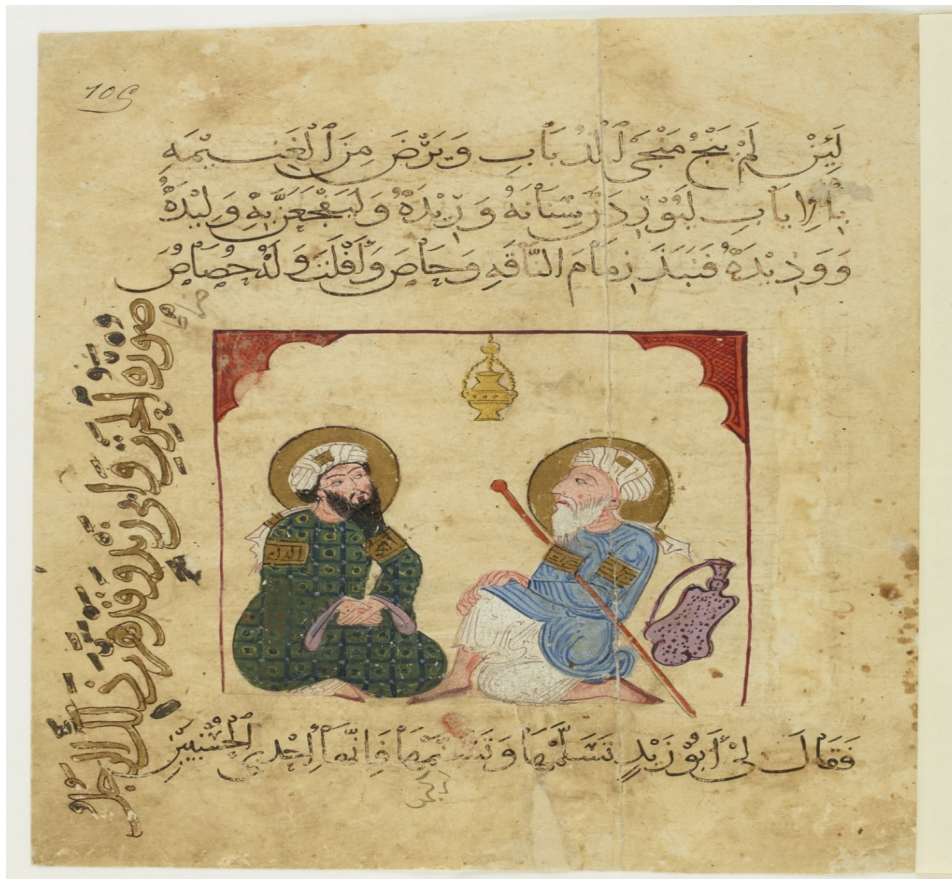 105
لَئِنْ لَمْ يَنْجُ مَنْجَى الذُّبَابِ وَيَرْضَ مِنَ الْغَنِيْمَةِ
بِالْإِيَابِ لَيُوْرِدَنَّ سِنَانَهُ وَرِيْدَهُ وَلَيَفْجَعَنَّ بِهِ وَلِيْدَهُ
وَوَدِيْدَهُ فَنَبَذَ زِمَامَ النَّاقَةِ وَحَاصَ وَأَفْلَتَ وَلَهُ حُصَاصٌ
صورة الحرث وأبي زيد وقد هرب ذلك الرجل
فَقَالَ لِيْ أَبُوْ زَيْدٍ تَسَلَّمْهَا وَتَسَنَّمْهَا فَإِنَّهَا إِحْدَى الْحُسْنَيَيْنِ